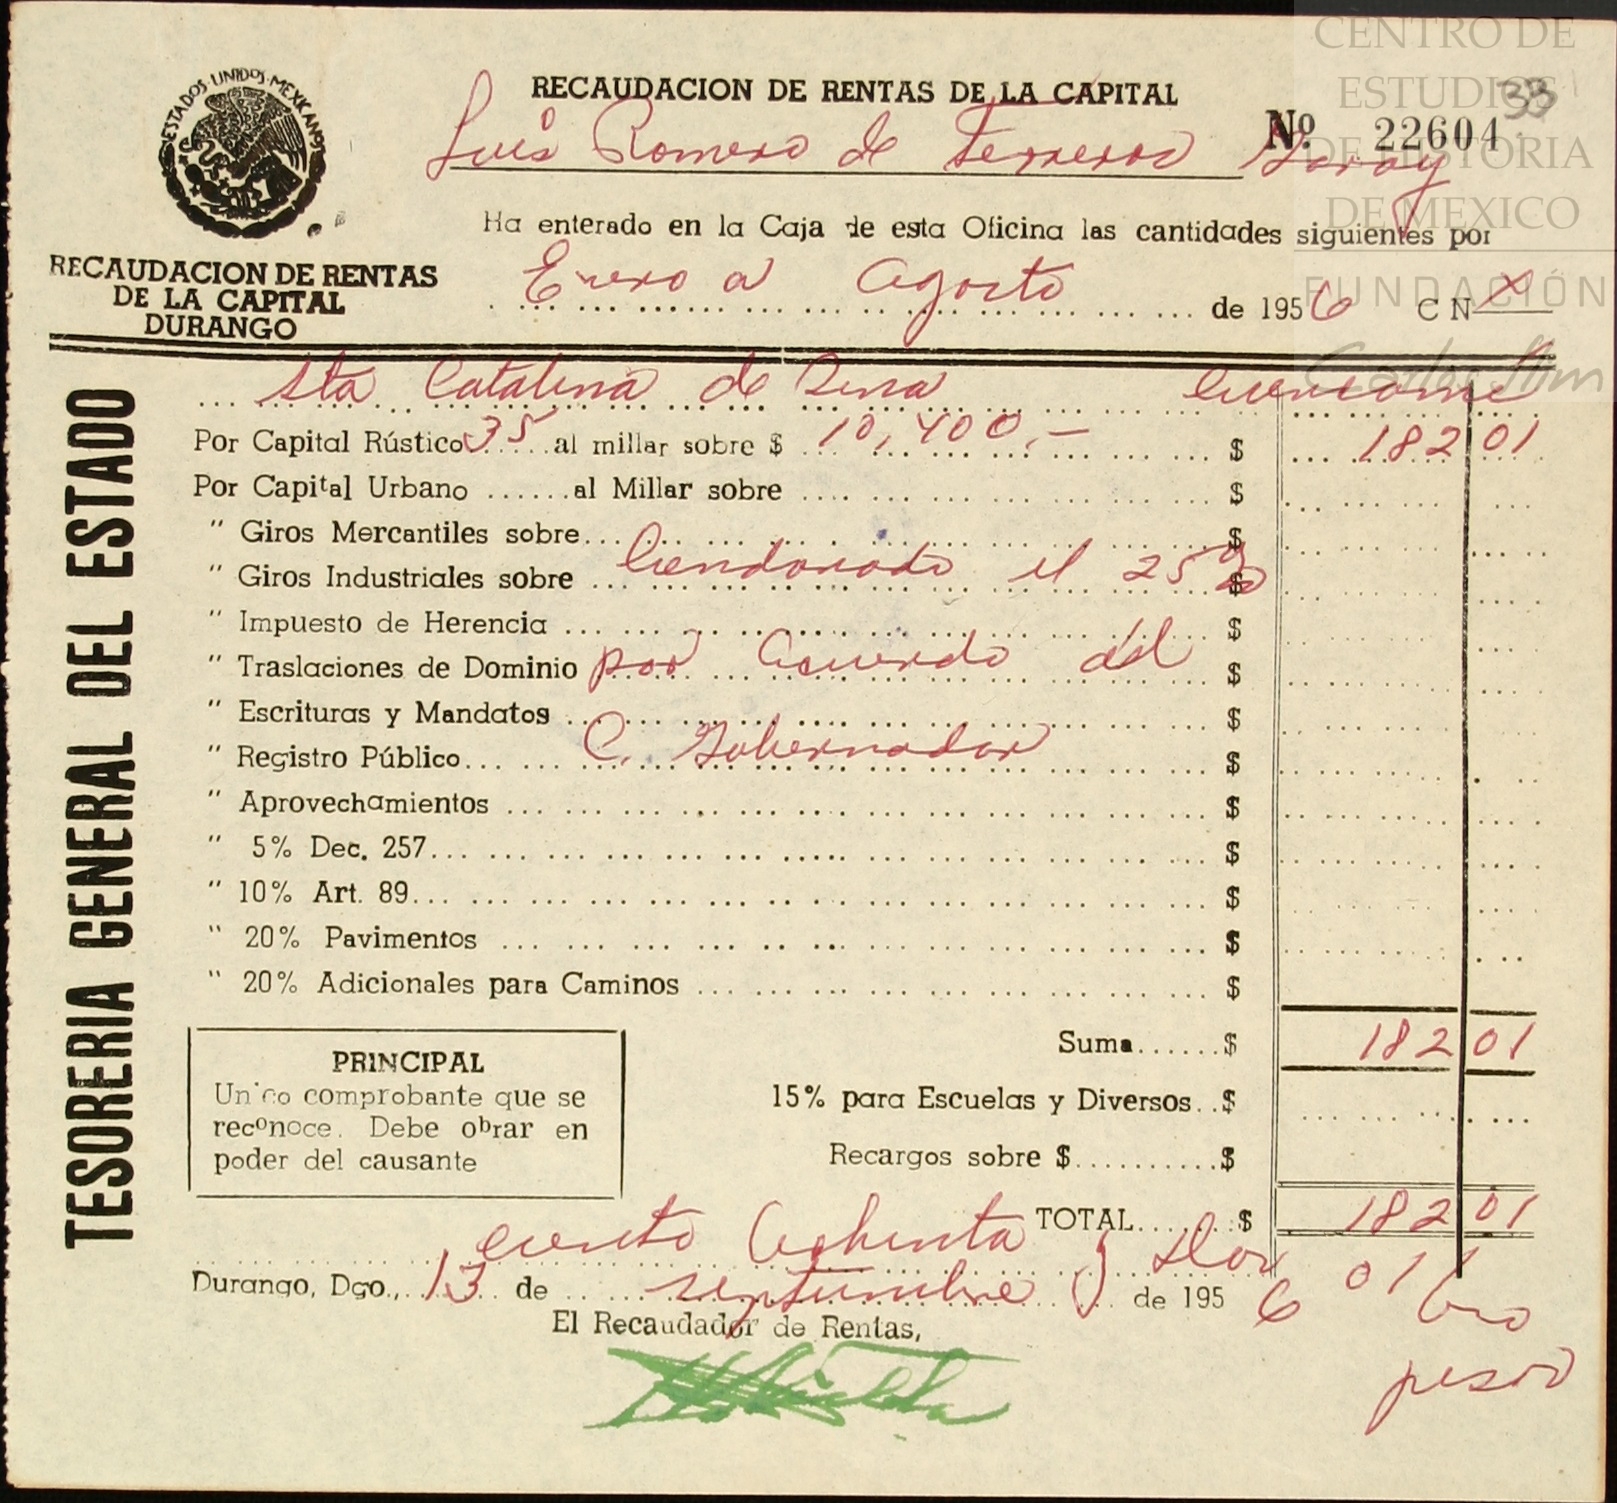 CENTRO DE
ESTUDIOS
DE HISTORIA
DE MEXICO
FUNDACIÓN
Carlos Slim
ESTADOS UNIDOS MEXICANOS
RECAUDACION DE RENTAS DE LA CAPITAL
33
Nº 22604
Luis Romero de Terreros Garay
Ha enterado en la Caja de esta Oficina las cantidades siguientes por
RECAUDACION DE RENTAS
DE LA CAPITAL
DURANGO
Enero a Agosto de 1956 C N x
TESORERIA GENERAL DEL ESTADO
Sta Catalina de Sena Cuencamé
Por Capital Rústico 35 al millar sobre $ 10,400.— $ 182 01
Por Capital Urbano ......al Millar sobre .... $
" Giros Mercantiles sobre... $
" Giros Industriales sobre ... $
Condonado el 25%
" Impuesto de Herencia ... $
" Traslaciones de Dominio $
por acuerdo del
" Escrituras y Mandatos ... $
" Registro Público... $
C. Gobernador
" Aprovechamientos ... $
" 5% Dec. 257... $
" 10% Art. 89... $
" 20% Pavimentos ... $
" 20% Adicionales para Caminos ... $
Suma......$ 182 01
PRINCIPAL
Unico comprobante que se
reconoce. Debe obrar en
poder del causante
15% para Escuelas y Diversos..$
Recargos sobre $..........$
TOTAL.......$ 182 01
ciento ochenta y dos 01/ pesos
Durango, Dgo., 13 de septiembre de 1956
El Recaudador de Rentas,